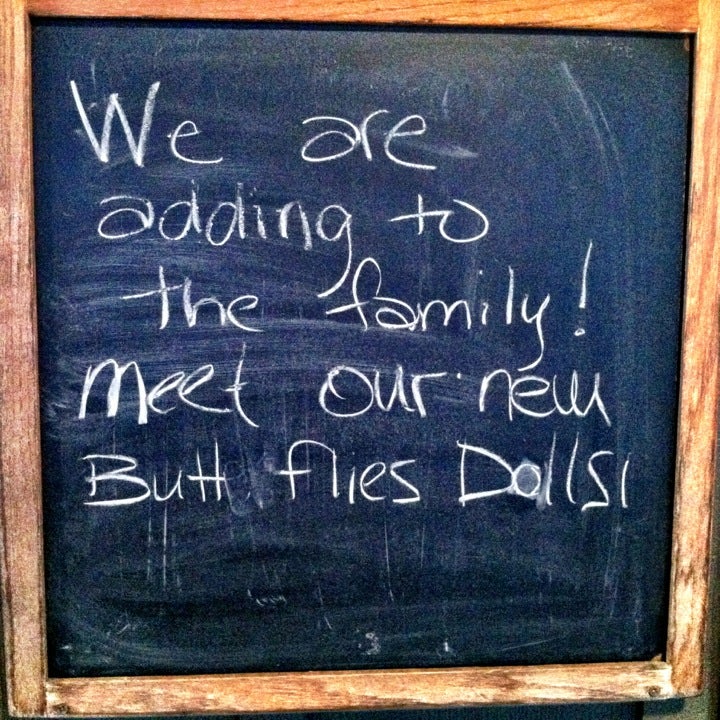 We are
adding to
the family!
meet our new
Butt flies Dolls!